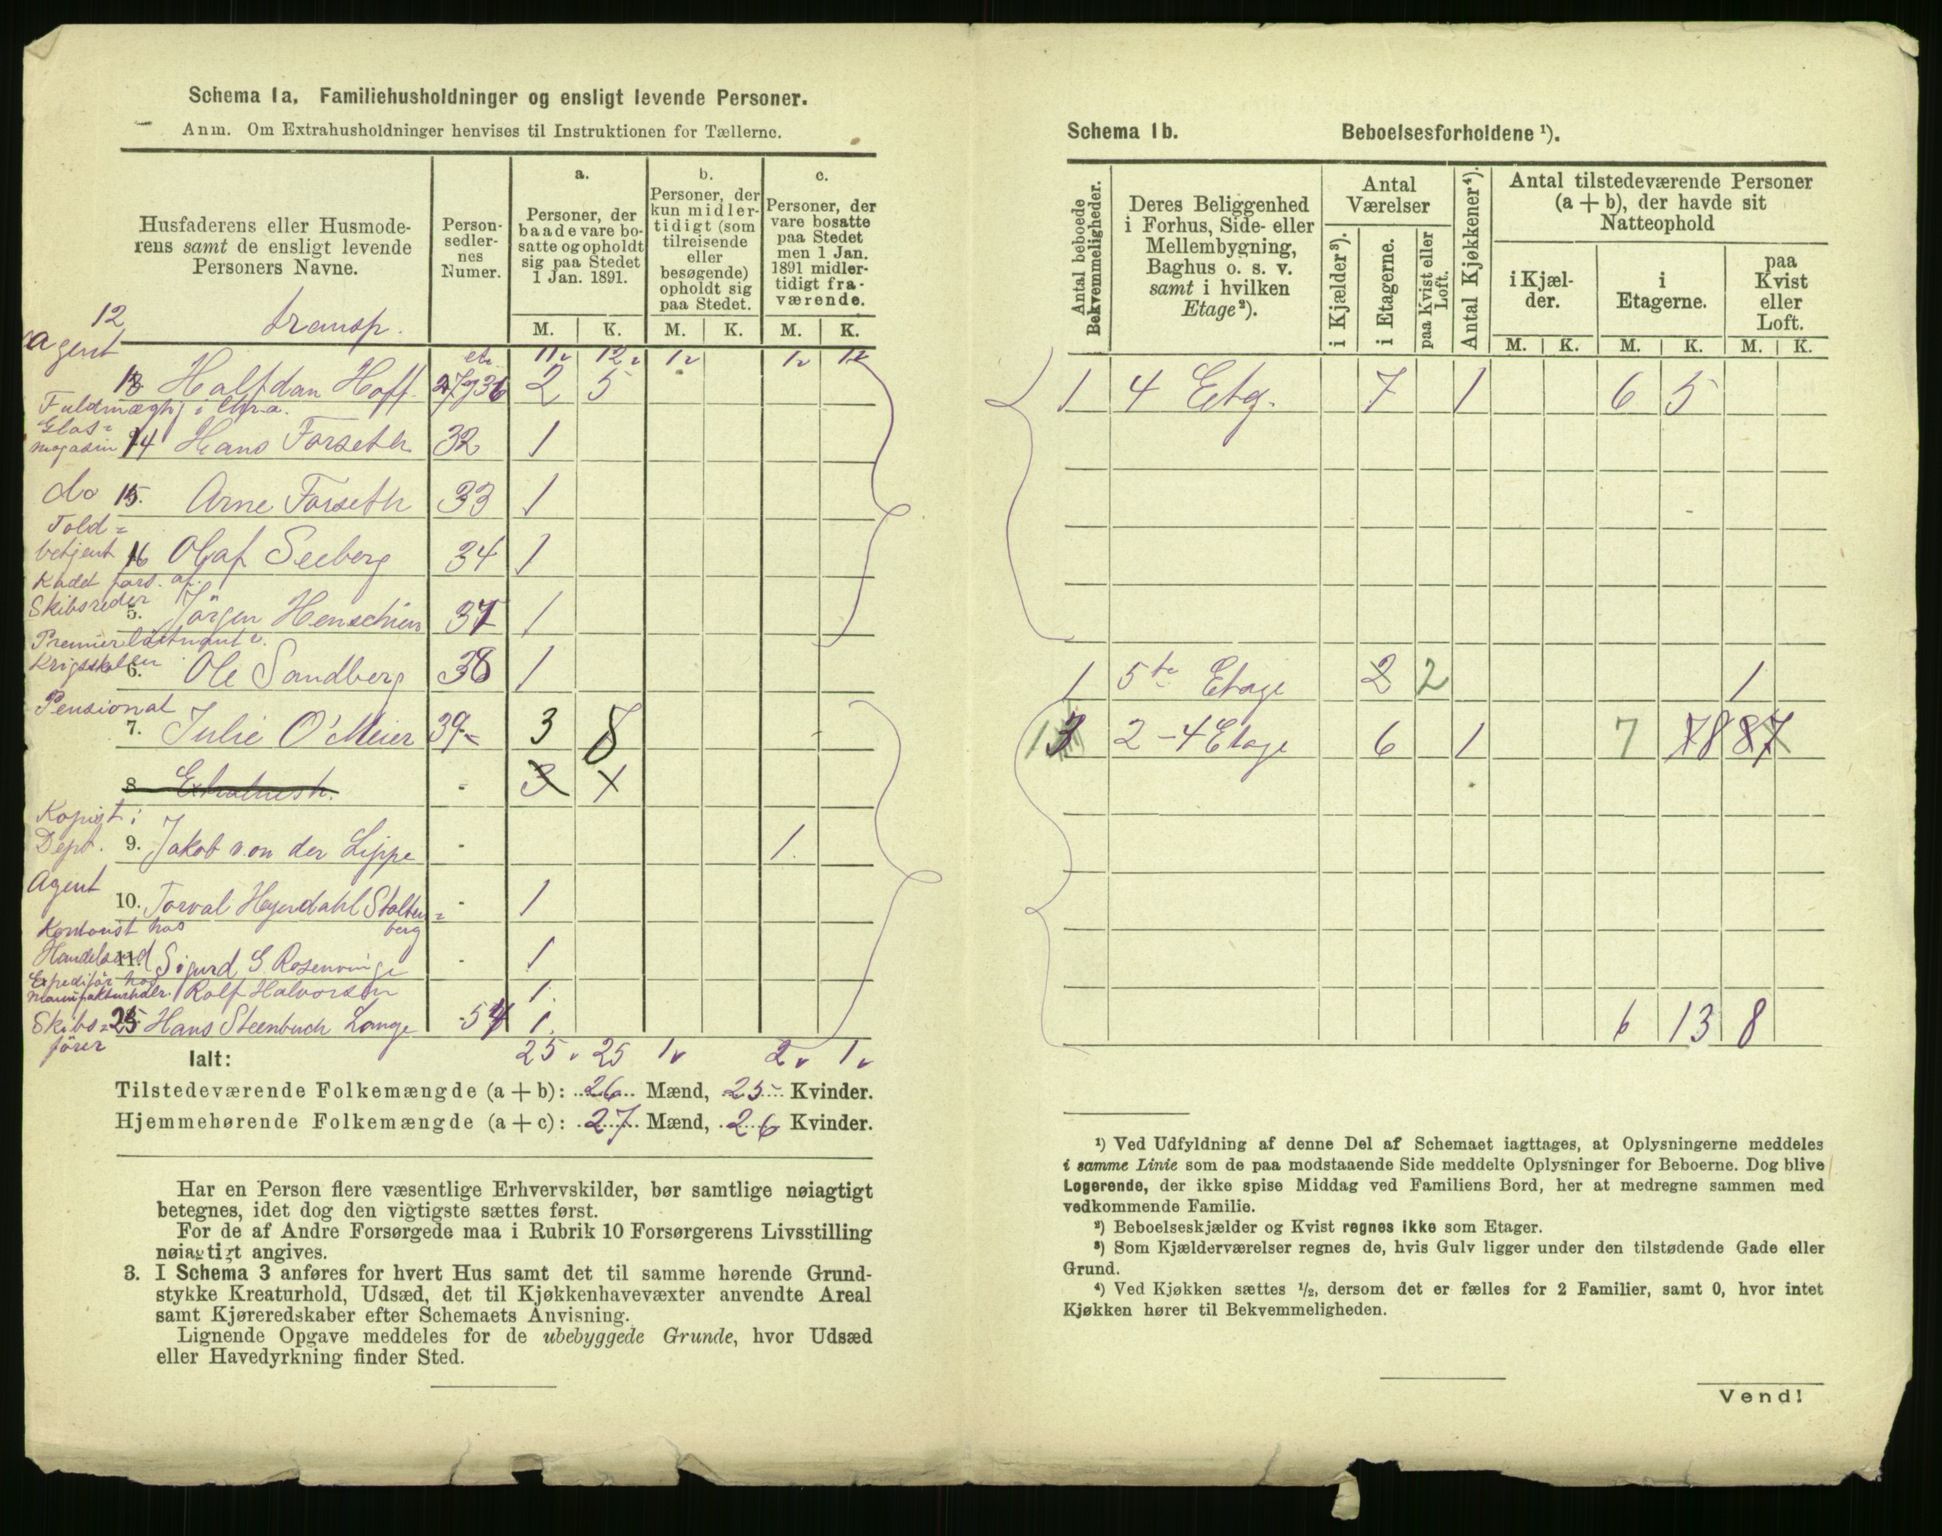 Schema 1a. Familiehusholdninger og ensligt levende Personer.
Anm. Om Extrahusholdninger henvises til Instruktionen for Tællerne.
Husfaderens eller Husmode-
rens samt de ensligt levende
Personers Navne.
Person-
sedler-
nes
Numer.
a.
Personer, der
baade vare bo-
satte og opholdt
sig paa Stedet
1 Jan. 1891.
b.
Personer, der
kun midler-
tidigt (som
tilreisende
eller
besøgende)
opholdt sig
paa Stedet.
c.
Personer, der
vare bosatte
paa Stedet
men 1 Jan.
1891 midler-
tidigt fra-
værende.
M. K. M. K. M. K.
12 transp.
11 12 1 1 1
Agent
13 Halfdan Hoff. 2 5
Fuldmægtig i Chr.a.
Glas=
magasin 14 Hans Forseth 32 1
do 15. Arne Forseth 33 1
Told=
betjent 16 Olaf Seeberg 34 1
Kadet fors. af.
Skibsreder 5. Jörgen Henschien 37 1
Premierløitnant v.
Krigsskolen 6. Ole Sandberg 38 1
Pensionat
7. Julie O'Meier 39- 3 8
8 Extrahush. - 3
Kopist i
Dept. 9. Jakob von der Lippe - 1.
Agent
10. Torval Heyerdahl Stolten=
berg - 1
Kontorist hos
Handelsmd 11. Sigurd G. Rosenvinge - 1
Expeditør hos
Manufakturhdlr. Rolf Halvorsen 1.
Skibs=
fører 25 Hans Steenbuch Lange -54 1.
Ialt: 25 25 1 2 1
Tilstedeværende Folkemængde (a + b): 26 Mænd, 25 Kvinder.
Hjemmehørende Folkemængde (a + c): 27 Mænd, 26 Kvinder.
Har en Person flere væsentlige Erhvervskilder, bør samtlige nøiagtigt
betegnes, idet dog den vigtigste sættes først.
For de af Andre Forsørgede maa i Rubrik 10 Forsørgerens Livsstilling
nøiagtigt angives.
3. I Schema 3 anføres for hvert Hus samt det til samme hørende Grund-
stykke Kreaturhold, Udsæd, det til Kjøkkenhavevæxter anvendte Areal
samt Kjøreredskaber efter Schemaets Anvisning.
Lignende Opgave meddeles for de ubebyggede Grunde, hvor Udsæd
eller Havedyrkning finder Sted.
Schema 1b. Beboelsesforholdene ¹).
Antal beboede
Bekvemmeligheder.
Deres Beliggenhed
i Forhus, Side- eller
Mellembygning,
Baghus o. s. v.
samt i hvilken
Etage²).
Antal
Værelser
i Kjælder³).
i Etagerne.
paa Kvist eller
Loft.
Antal Kjøkkener⁴).
Antal tilstedeværende Personer
(a + b), der havde sit
Natteophold
i Kjæl-
der.
i
Etagerne.
paa
Kvist
eller
Loft.
M. K. M. K. M. K.
1 4 Etg. 7 1 6 5
1 5te Etage 2 2 1
3 2-4 Etage 6 1 7 8
6 13 8
¹) Ved Udfyldning af denne Del af Schemaet iagttages, at Oplysningerne meddeles
i samme Linie som de paa modstaaende Side meddelte Oplysninger for Beboerne. Dog blive
Logerende, der ikke spise Middag ved Familiens Bord, her at medregne sammen med
vedkommende Familie.
²) Beboelseskjælder og Kvist regnes ikke som Etager.
³) Som Kjælderværelser regnes de, hvis Gulv ligger under den tilstødende Gade eller
Grund.
⁴) Ved Kjøkken sættes ½, dersom det er fælles for 2 Familier, samt 0, hvor intet
Kjøkken hører til Bekvemmeligheden.
Vend!